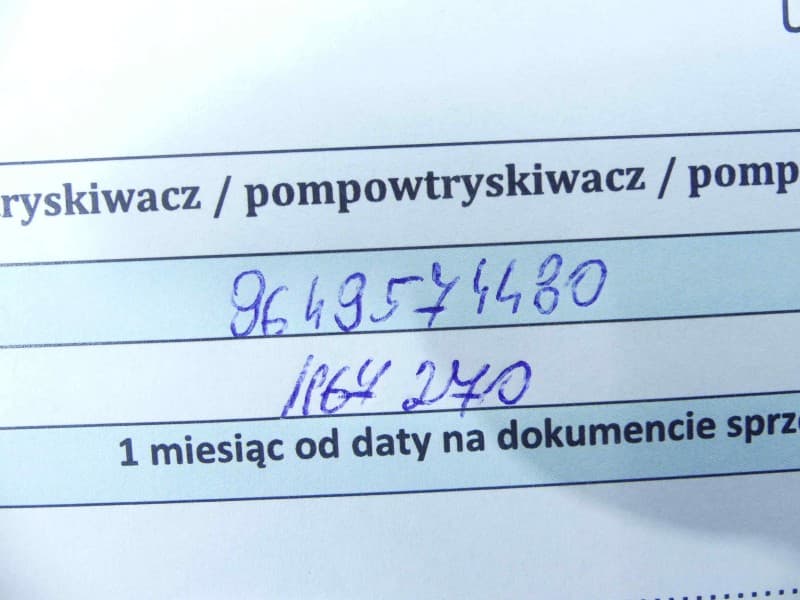 ryskiwacz / pompowtryskiwacz / pomp
9649574480
1 miesiąc od daty na dokumencie sprze